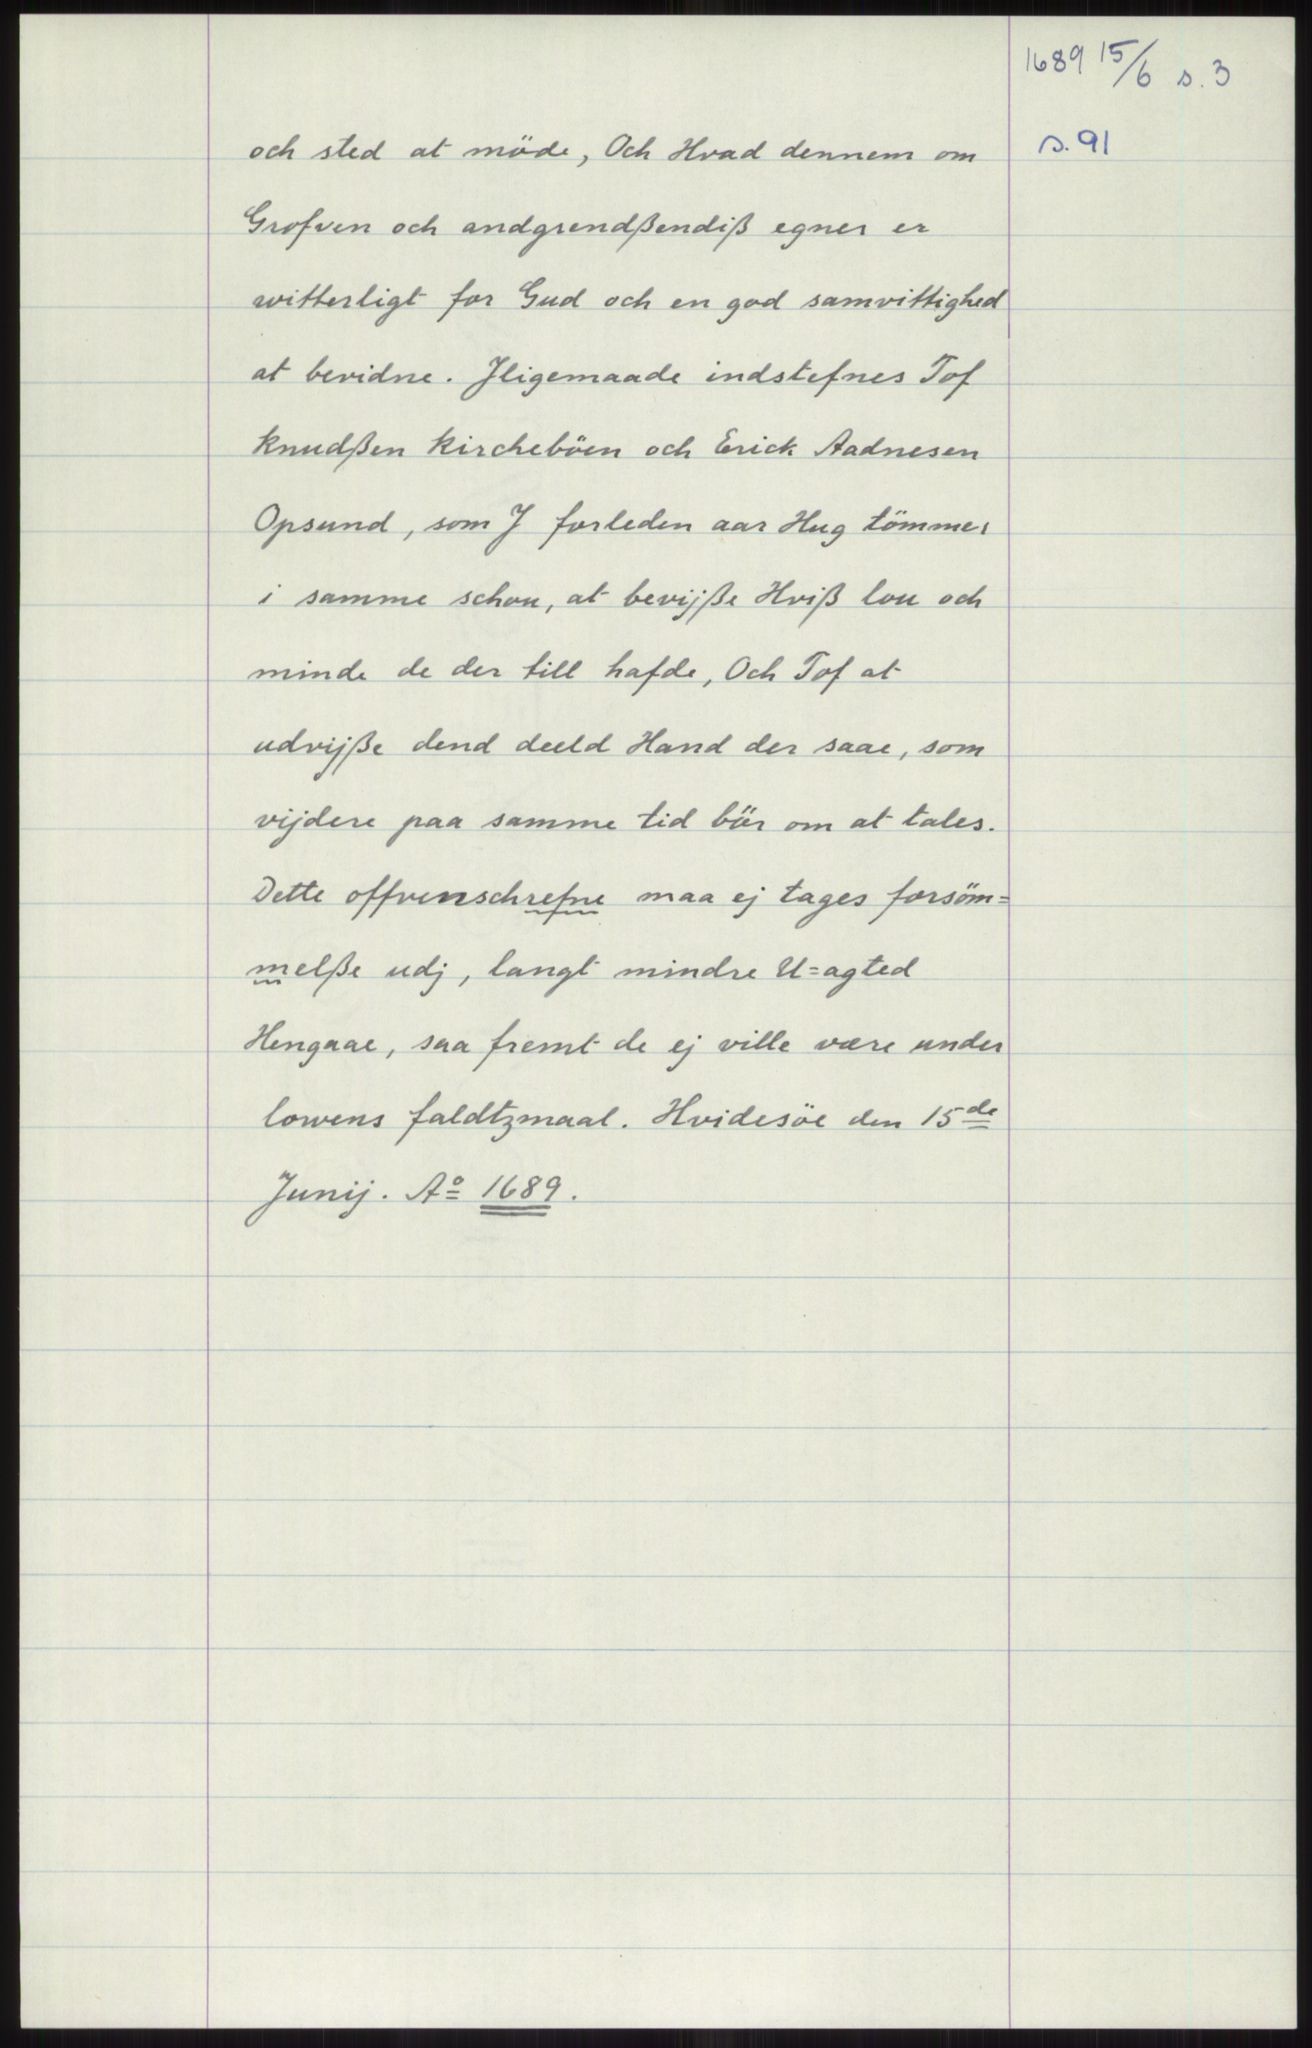 1689 15/6 s. 3
s. 91
och sted at möde, Och Hvad dennem om
Grofven och andgrendßendiß egner er
witterligt for Gud och en god samvittighed
at bevidne. Jligemaade indstefnes Tof
Knudßen Kircheböen och Erick Aadnesen
Opsund, som J forleden aar Hug tömmer
i samme schou, at bevijße Hviß lou och
minde de der till hafde, Och Tof at
udvijße dend deeld Hand der saae, som
vijdere paa samme tid bör om at tales.
Dette offvenschrefne maa ej tages forsöm=
melße udj, langt mindre U=agted
Hengaae, saa fremt de ej ville være under
lowens faldtzmaal. Hvidesöe den 15de
Junij. Ao 1689.